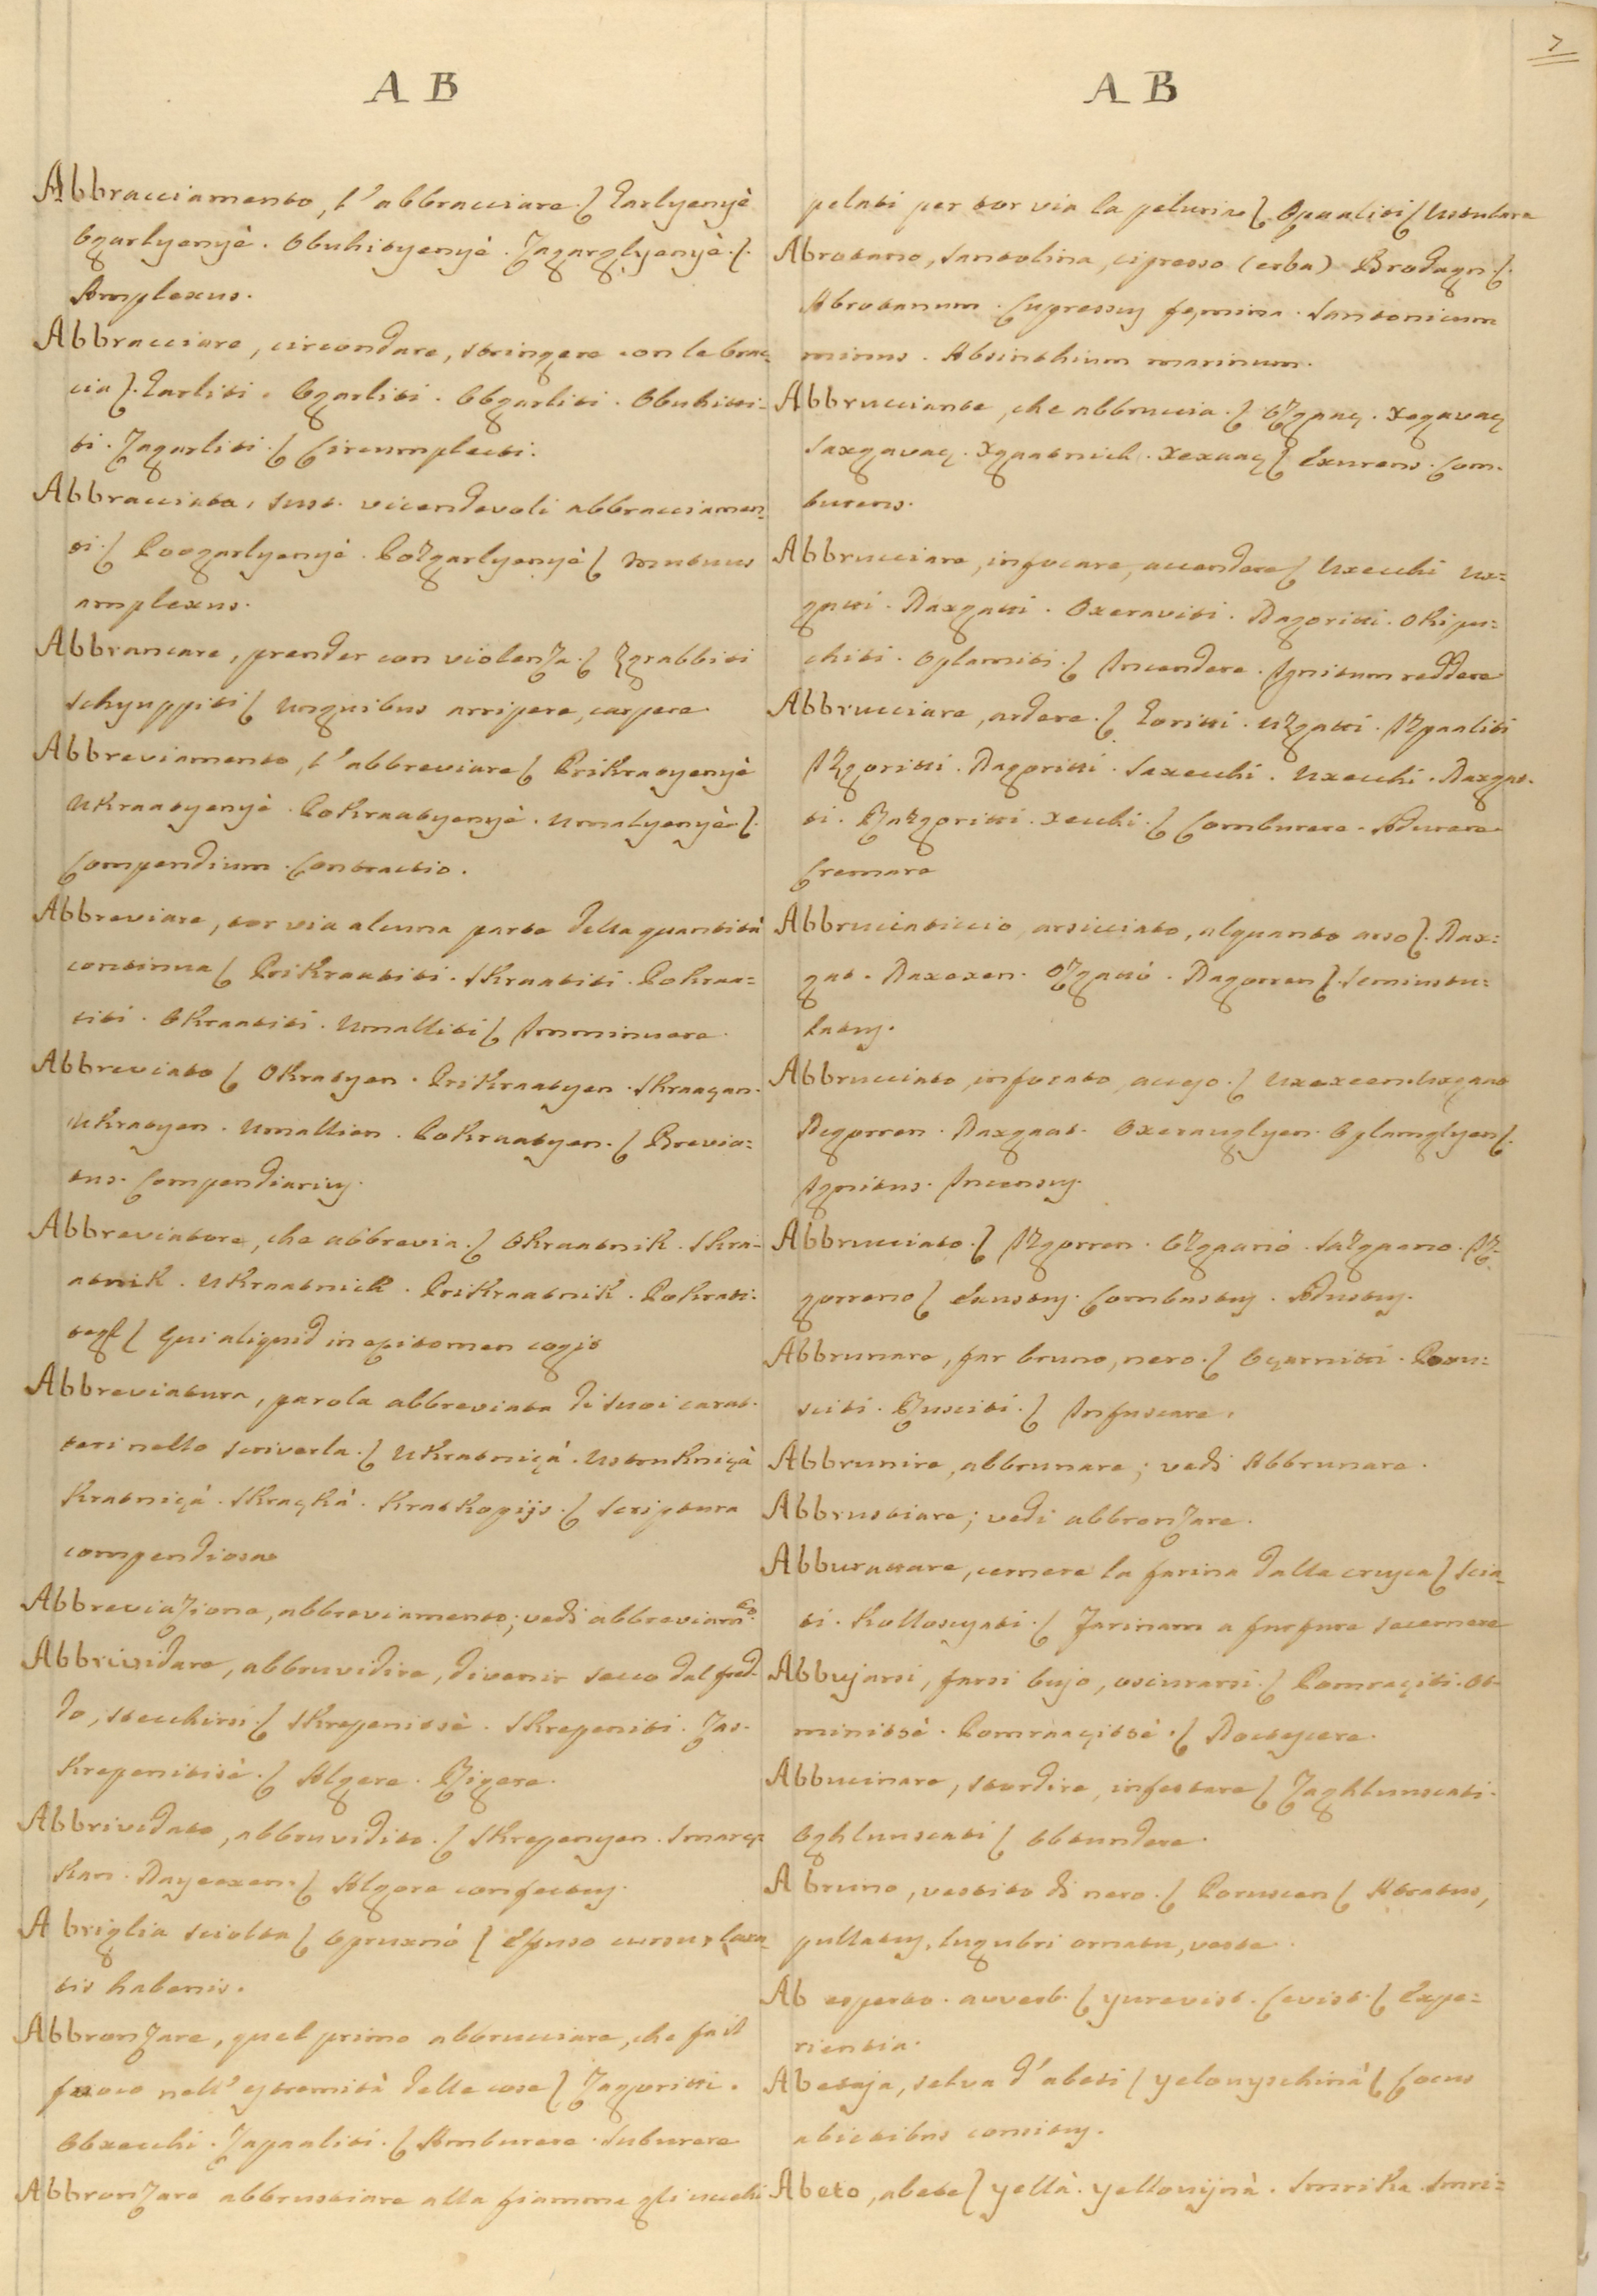 7
A B
Abbracciamento, l'abbracciare.{ Earlyenyè
Ogarlyenyè. Obuhityenyè. Zagarglyenyè.{.
Amplexus.
Abbracciare, circondare, stringere con le brac=
cia{. Earliti. Ogarliti. Obgarliti. Obuhitti=
ti. Zagarliti.{ Circumplecti.
Abbracciata, sust. vicendevoli abbracciamen=
ti.{ Poogarlyenyè. Pozgarlyenyè{ Mutuus
amplexus.
Abbrancare, prender con violenza.{ Zgrabbiti
Schyuppiti{ Unguibus arripere, carpere.
Abbreviamento, l'abbreviare{ Prikraatyenyè
Ukraatyenyè. Pokraatyenyè. Umalyenyè{.
Compendium. Contractio.
Abbreviare, tor via alcuna parte della quantità
continua{ Prikraatiti. Skraatiti. Pokraa=
titi. Okraatiti. Umalliti{ Imminuere.
Abbreviato{ Okratyen. Prikraatyen. Skraaçan.
Ukratyen. Umallien. Pokraatyen.{ Brevia=
tus. Compendiarius.
Abbreviatore, che abbrevia.{ Okraatnik. Skra=
atnik. Ukraatnick. Prikraatnik. Pokrati=
tegl{ Qui aliquid in epitomen cogit
Abbreviatura, parola abbreviata di suoi carat=
teri nello scriverla.{ Ukratniçà. Ustrukniçà
Kratniçà. Skraçkà. Kratkopijs.{ Scriptura
compendiosa
Abbreviazione, abbreviamento; vedi abbreviam.to
Abbrividare, abbruvidire, divenir secco dal fred=
do, stecchirsi.{ Skrepenitsè. Skrepeniti. Zas=
krepenitisè.{ Algere. Rigere.
Abbrividato, abbruvidito.{ Skrepenyen. Smarçz
kan. {Algore confectus.
A briglia sciolta{ Opruxnò{ Effuso cursu, laxa=
tis habenis.
Abbronzare, quel primo abbrucciare, che fa il
fuoco nell'estremità delle cose{ Zagoritti.
Obxecchi. Zapaaliti.{ Amburere. Suburere
Abbronzare abbrustiare alla fiamma gli uccelli
A B
pelati per tor via la peluria{. Opaaliti{ Ustulare
Abrotano, santolina, cipresso (erba) Brodagn{.
Abrotanum. Cupressus femina. Santonicum
minus. Absinthium marinum.
Abbrucciante, che abbruccia.{ Xegavaç
Saxgavaç. Xgaatnich. Xexuaç{ Exurens. Com=
burens.
Abbrucciare, infocare, accendere{ Uxecchi Ux=
gatti. Raxgatti. Oxeraviti. Ragoritti. Okipu=
chiti. Oplamiti.{ Incendere. Ignitum reddere
Abbrucciare, ardere.{ Goritti. Uzgatti. Izpaaliti
Izgoritti. Ragoritti. Saxecchi. Uxecchi. Raxgat=
ti. Razgoritti. Xecchi.{ Comburere. Adurere
Cremare
Abbrucciaticcio, arsicciato, alquanto arso{. Rax=
gat. Raxexen. Ozgattò. Ragorren{. Semiustu=
latus.
Abbrucciato, infocato, acceso.{ Uxexeen. Uxgaat
Regorren. Raxgaat. Oxerauglyen. Oplamglyen{.
Ignitus. Incensus.
Abbrucciato.{ Izgorren. Ozgaanò. Sazgaano. Iz=
gorreno{ Exustus. Combustus. Adustus.
Abbrunare, far bruno, nero.{ Oçarnitti. Poru=
sciti. Rusciti.{ Infuscare.
Abbrunire, abbrunare; vedi Abbrunare.
Abbrustiare; vedi abbronzare.
Abburattare, cernere la farina dalla crusca{ Scia=
ti. Kolloscyati.{ Farinam a furfure secernere
Abbujarsi, farsi bujo, oscurarsi.{ Pomraçiti. Ot=
minitsè. Pomraaçitsè.{ Noctescere.
Abbucinare, stordire, infestare{ Zaghlunscati.
Oghlunscati{ Obtundere.
A bruno, vestito di nero.{ Poruscen{ Atratus,
pullatus, lugubri ornatu, veste.
Ab esperto. avverb.{ Yurevist. {Expe=
rientia.
Abetaja, selva d'abeti{ Yelouyschinà{ Locus
abietibus consitus.
Abeto, abete{ Yellà. Yellouijnà. Smrika. Smri=